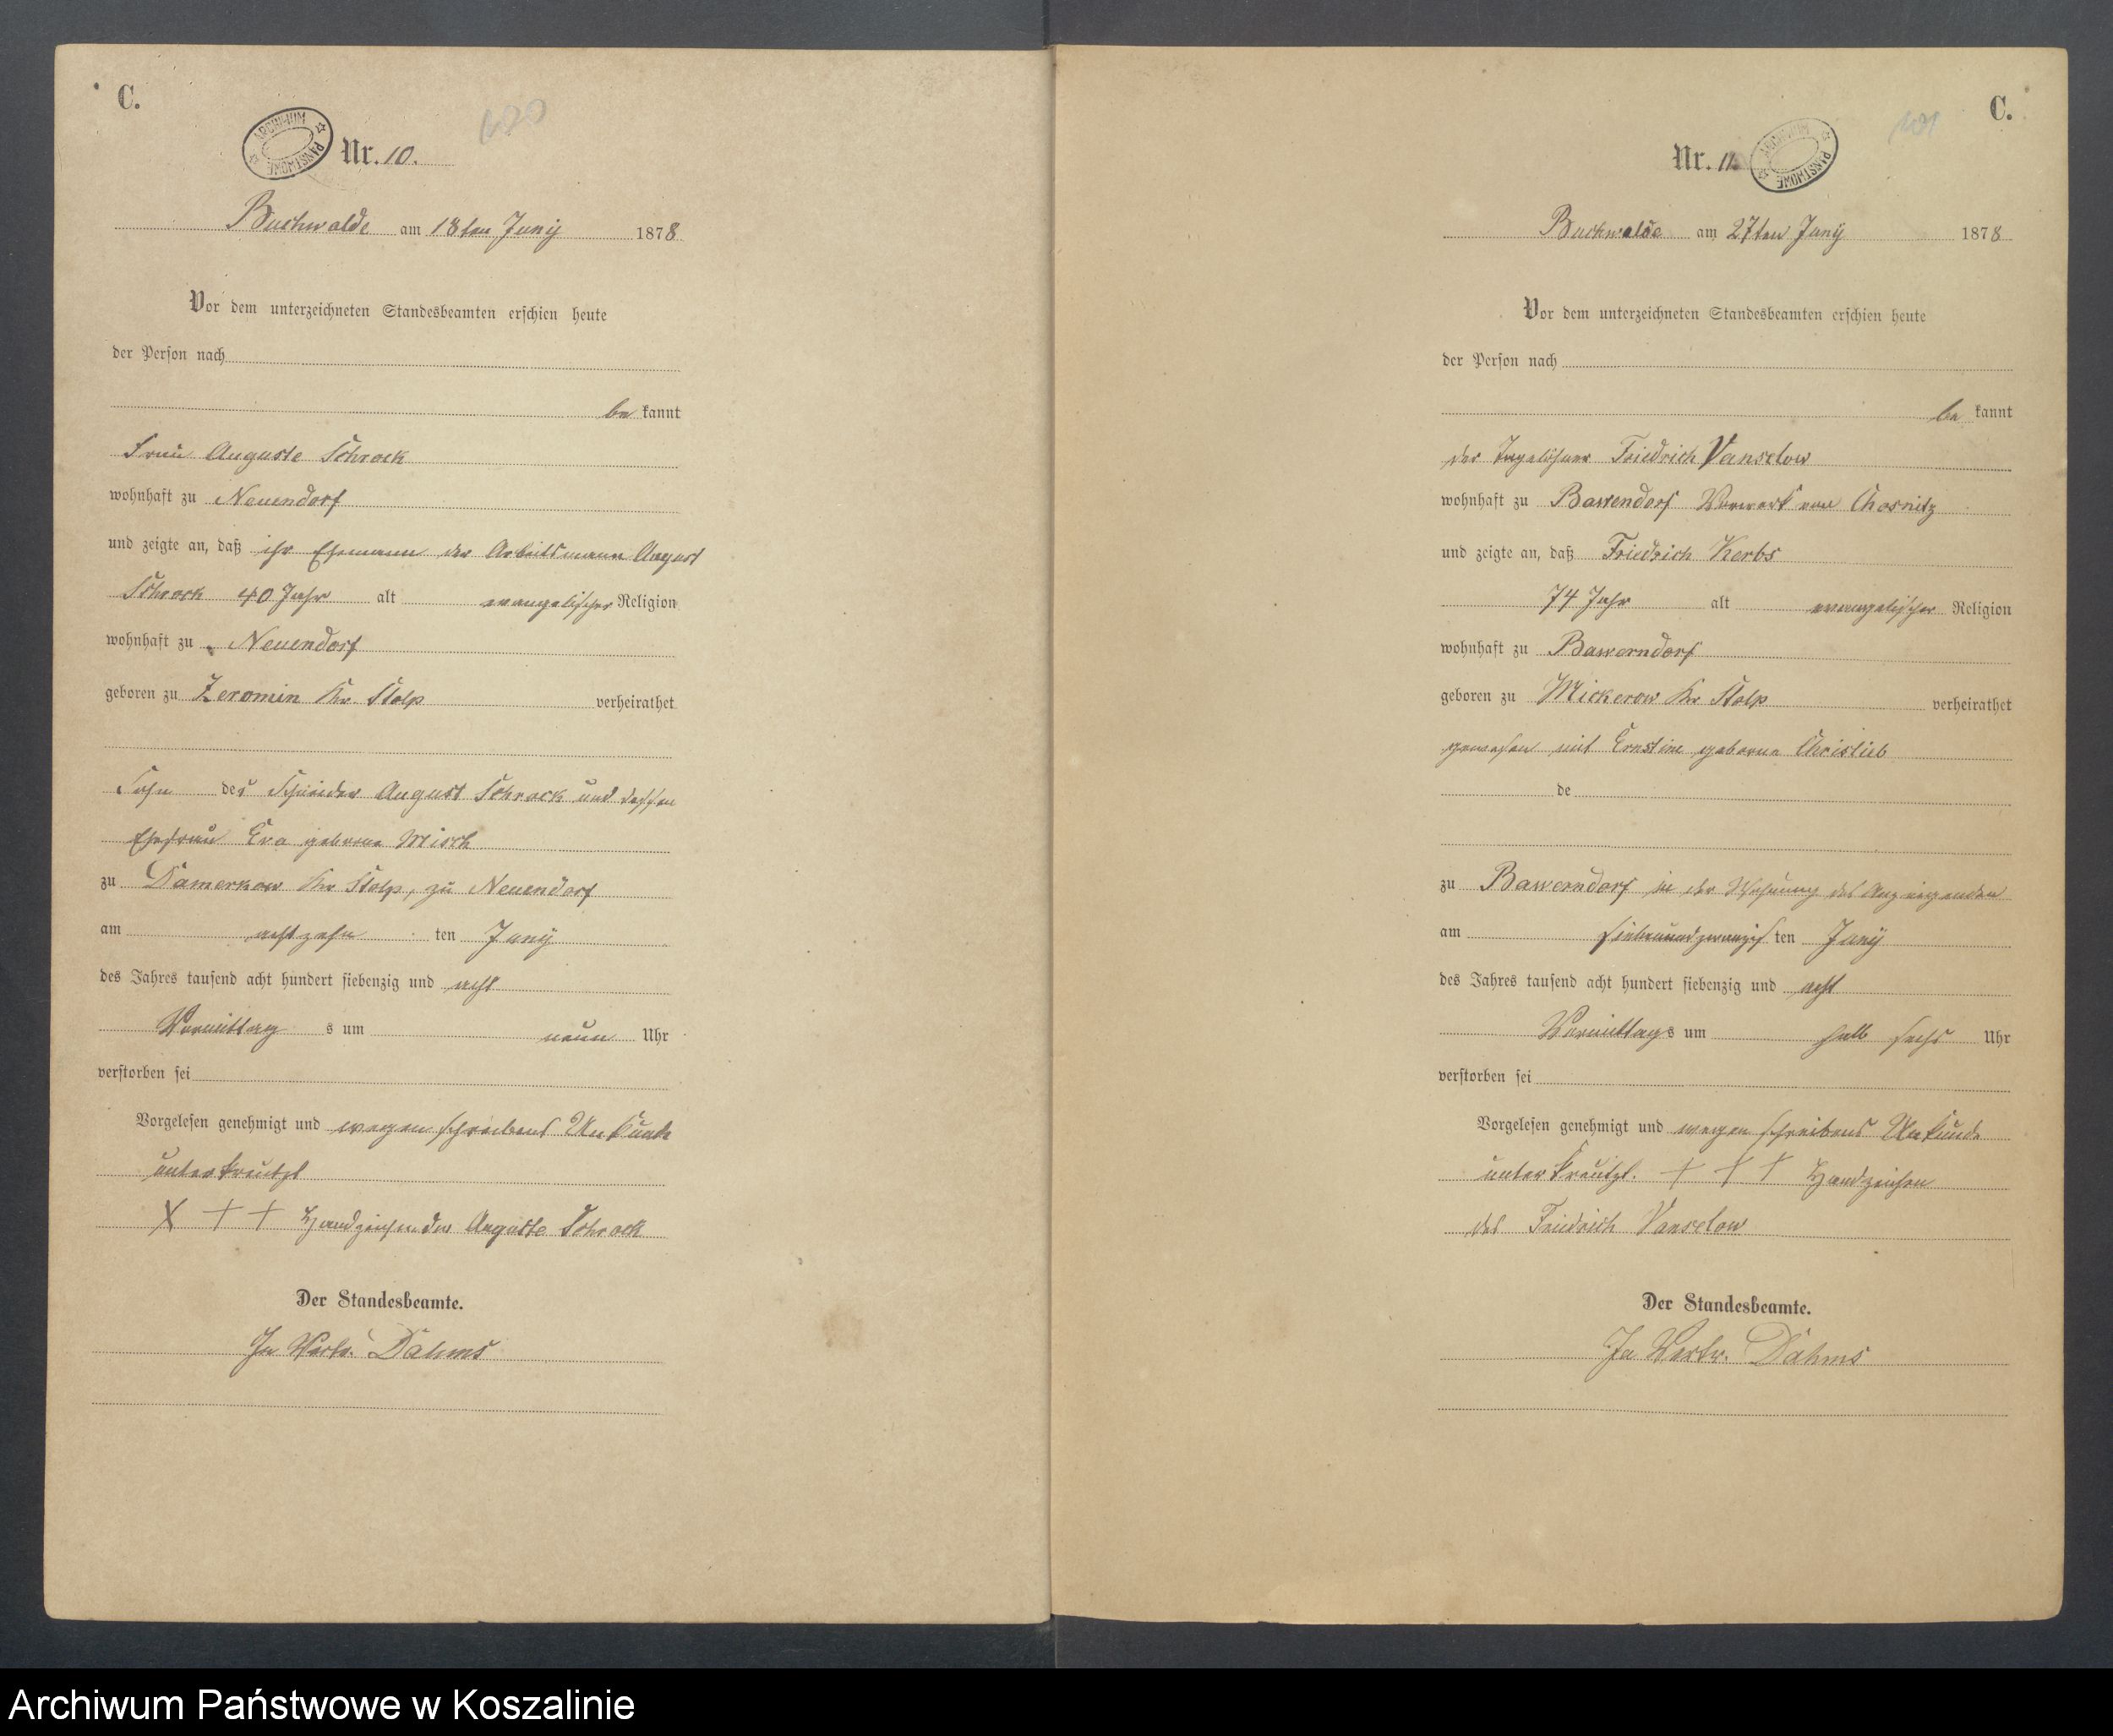 C.
ARCHIWUM PAŃSTWOWE
Nr. 10.
Buchwalde am 18ten Juny 1878
Vor dem unterzeichneten Standesbeamten erschien heute
der Person nach
be kannt
Frau Auguste Schrock
wohnhaft zu Neuendorf
und zeigte an, daß ihr Ehemann der Arbeitsmann August
Schrock 40 Jahr alt evangelischer Religion
wohnhaft zu Neuendorf
geboren zu Zeromin Kr Stolp verheirathet
Sohn des August Schrock und dessen
Ehefrau Eva geborne Misch
zu Damerkow Kr Stolp, zu Neuendorf
am achtzehn ten Juny
des Jahres tausend acht hundert siebenzig und acht
Vormittag s um neun Uhr
verstorben sei
Vorgelesen genehmigt und wegen schreibens Unkunde
unterkreutzt
X + + Handzeichen der Auguste Schrock
Der Standesbeamte.
In Vertr. Dahms
C.
Nr. 11
ARCHIWUM PAŃSTWOWE
Buchwalde am 27ten Juny 1878
Vor dem unterzeichneten Standesbeamten erschien heute
der Person nach
be kannt
der Tagelöhner Friedrich Vanselow
wohnhaft zu Vorwerk von Chosnitz
und zeigte an, daß Friedrich Kerbs
74 Jahr alt evangelischer Religion
wohnhaft zu Bawerndorf
geboren zu Mickerow Kr Stolp verheirathet
gewesen mit Ernstine geborne Christlieb
de
zu Bawerndorf in der Wohnung des Anzeigenden
am siebenundzwanzigs ten Juny
des Jahres tausend acht hundert siebenzig und acht
Vormittags um halb sechs Uhr
verstorben sei
Vorgelesen genehmigt und wegen schreibens Unkunde
unterkreutzt. + + + Handzeichen
des Friedrich Vanselow
Der Standesbeamte.
In Vertr. Dahms
Archiwum Państwowe w Koszalinie